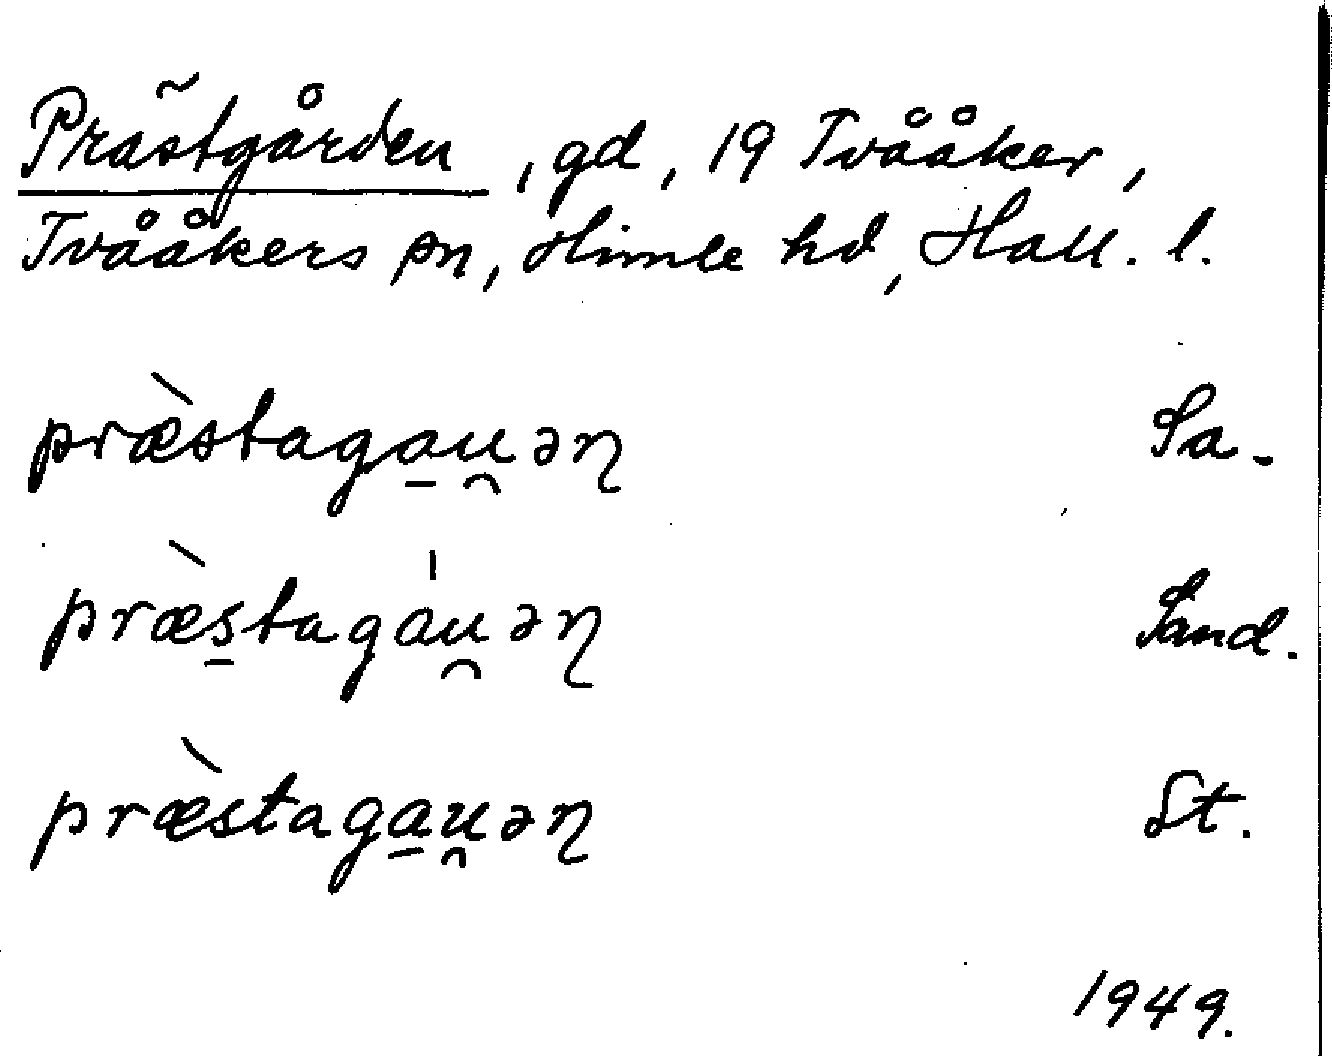 Prästgården, gd, 19 Tvååker,
Tvååkers sn, Himle hd, Hall. l.
præ̀staga̱u̯əɳ Sa.
præ̀s̱tagáu̯əɳ Sand.
præ̀staga̱u̯əɳ St.
1949.